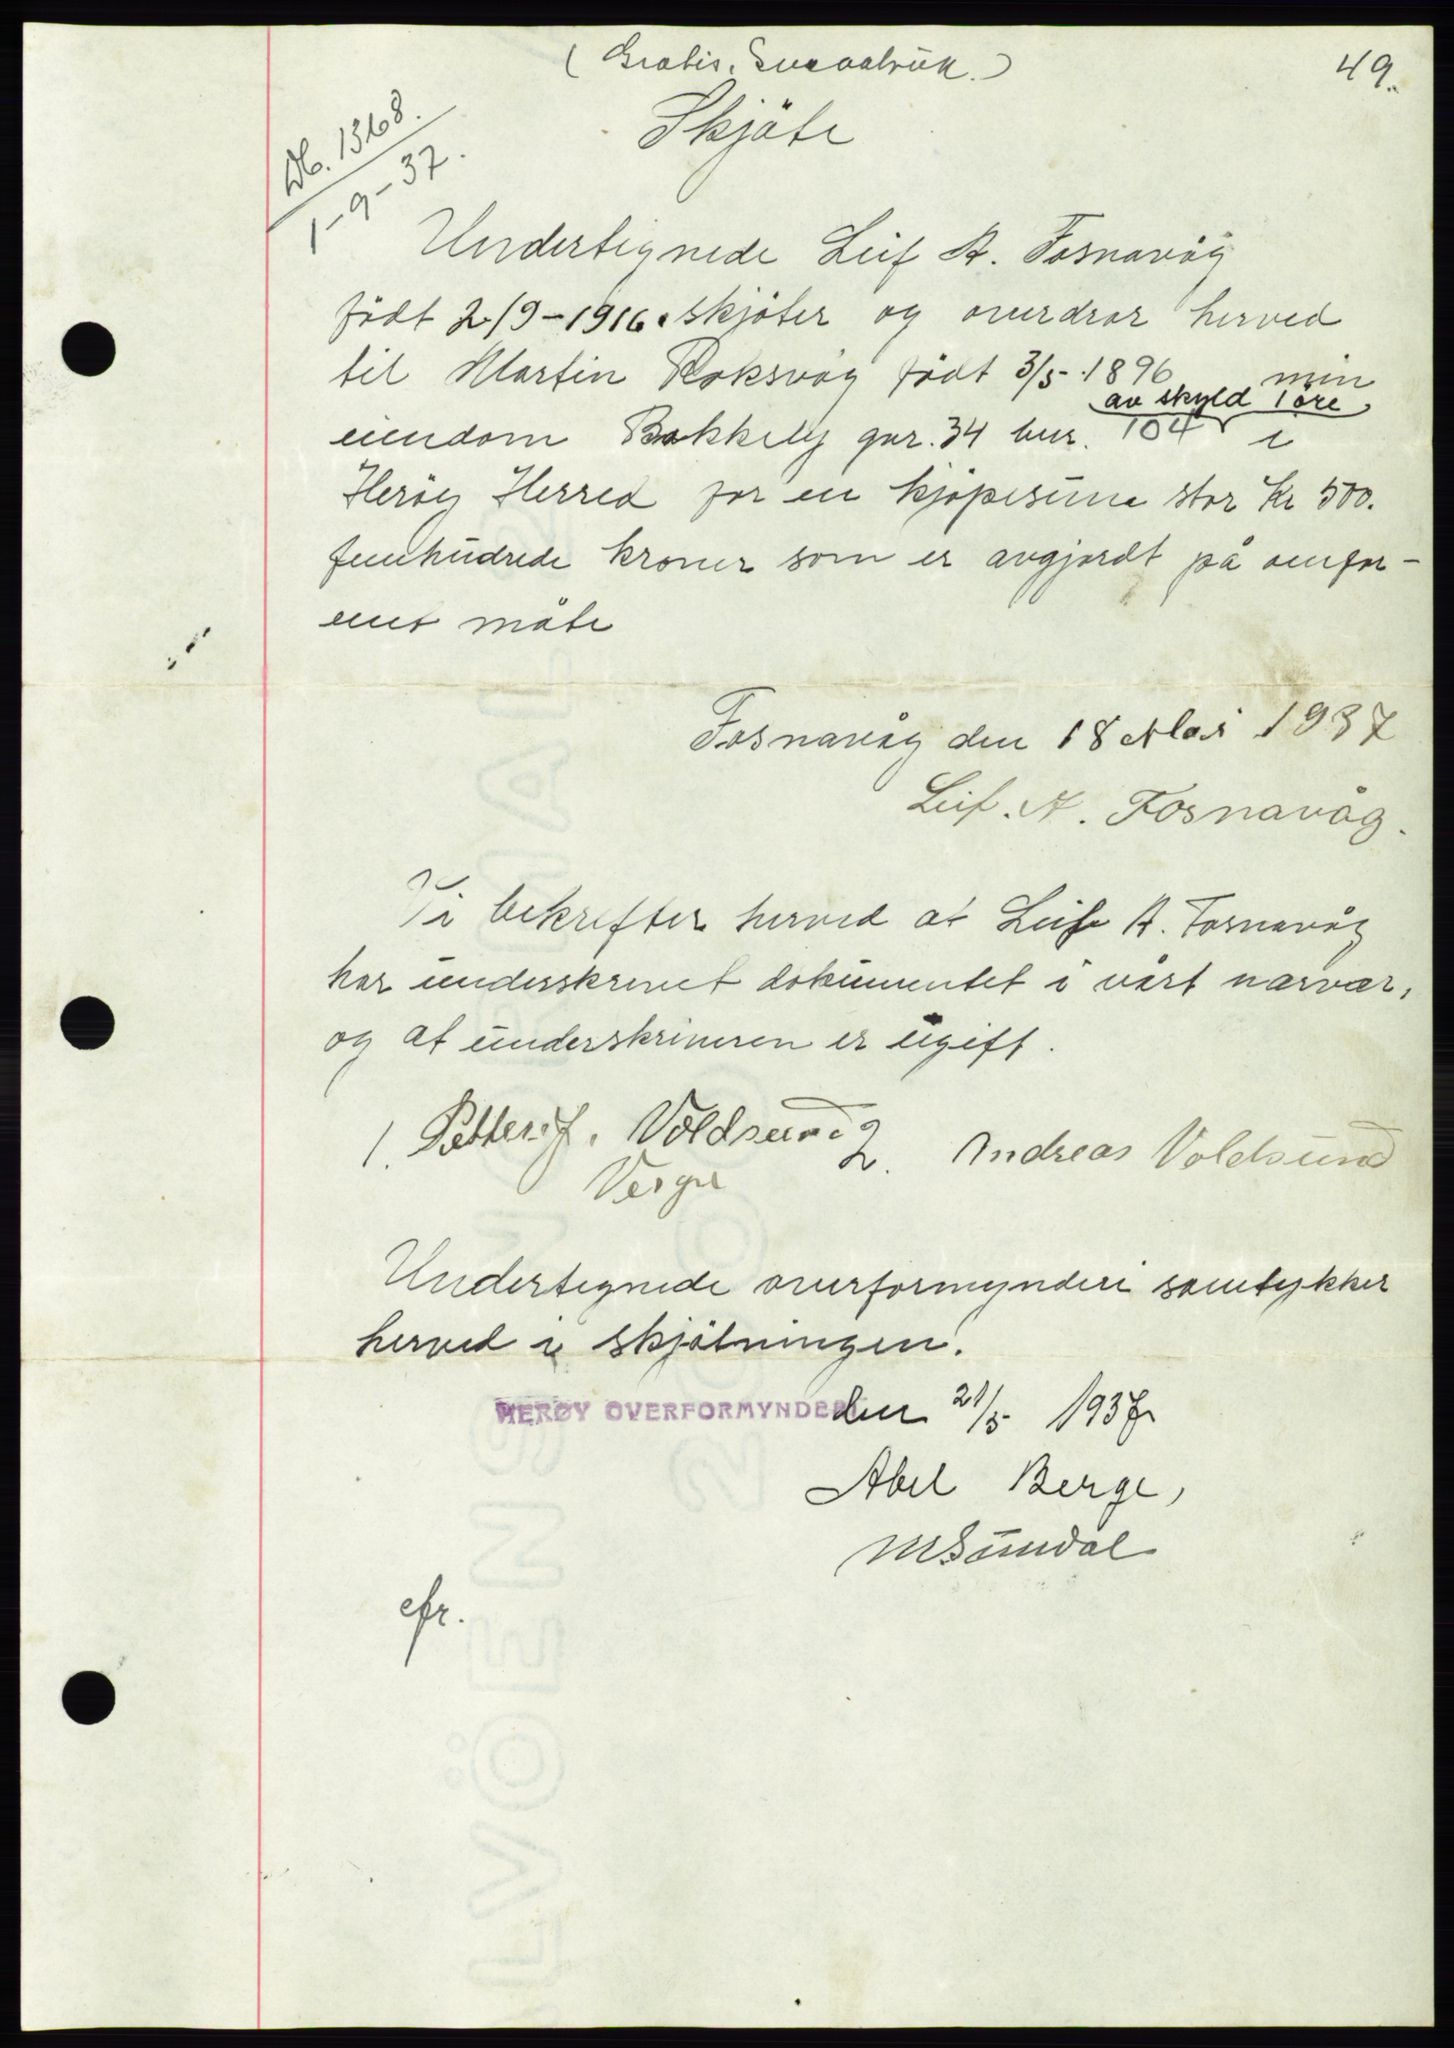 (Gratis. Småbruk.)
49.
Skjøte
Db. 1368.
1-9-37.
Undertegnede Leif A. Fosnavåg
født 2/9-1916. skjøter og overdrar herved
til Martin Roksvåg født 3/5-1896 min
av skyld 1 øre
eiendom Bakkely gnr. 34 bnr. 104 i
Herøy Herred for en kjøpesum stor Kr 500.
femhundrede kroner som er avgjordt på omfor-
ent måte
Fosnavåg den 18 Mai 1937
Leif. A. Fosnavåg.
Vi bekrefter herved at Leif A. Fosnavåg
har underskrevet dokumentet i vårt nærvær,
og at underskriveren er ugift.
1. Petter J. Voldsund 2. Andreas Voldsund
Verge
Undertegnede overformynderi samtykker
herved i skjøtningen.
HERØY OVERFORMYNDERI den 21/5 1937
Abel Berge,
M Sundal
cfr.